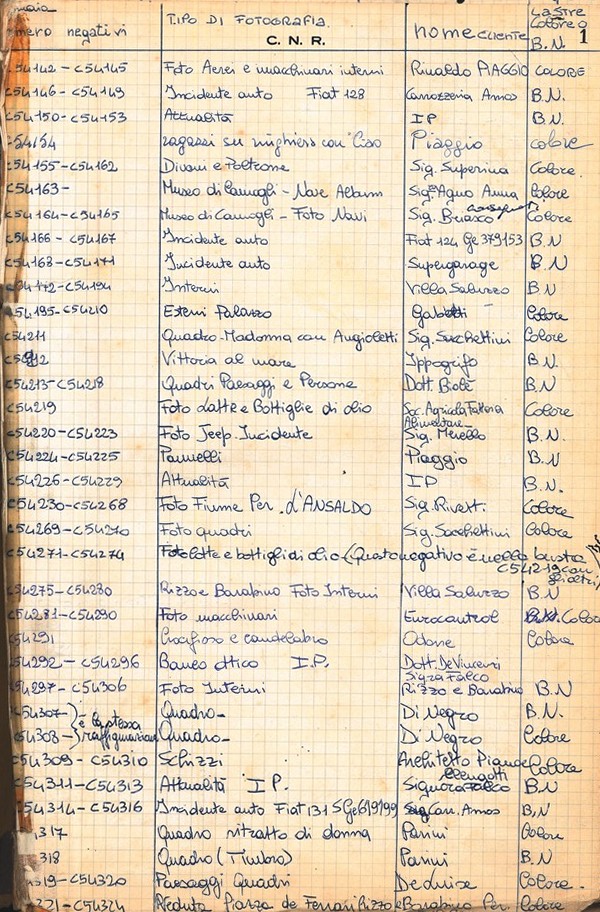 numero negativi TIPO DI FOTOGRAFIA nome CLIENTE LASTRE Colore o
C. N. R. B.N. 1
C54142-C54145 Foto Aerei e macchinari interni Rinaldo PIAGGIO COLORE
C54146-C54149 Incidente auto Fiat 128 Carrozzeria Amos B.N.
C54150-C54153 Attualità IP B.N.
C54154 ragazzi su con Ciao Piaggio colore
C54155-C54162 Divani e Poltrone Sig. Superina Colore.
C54163- Museo di Camogli - Nave Album Sig.ra Agno Anna Colore
C54164-C54165 Museo di Camogli - Foto Navi Sig. Briasco Colore
C54166-C54167 Incidente auto Fiat 124 Ge 379153 B.N
C54168-C54171 Incidente auto Supergarage B.N
C54172-C54194 Interni Villa Saluzzo B.N
C54195-C54210 Esterni Palazzo Colore
C54211 Quadro-Madonna con Angioletti Sig. Sacchettini Colore
Vittoria al mare Ippogrifo B.N.
C54213-C54218 Quadri Paesaggi e Persone Dott. B.N
C54219 Foto Latte e Bottiglie di olio Soc. Agricola Fattoria Colore
Alimentare-
C54220-C54223 Foto Jeep. Incidente Sig. Merello B.N.
C54224-C54225 Pannelli Piaggio B.N
C54226-C54229 Attualità IP B.N.
C54230-C54268 Foto Fiume Per. d'ANSALDO Sig. Rivett. Colore
C54269-C54270 Foto quadri Sig. Sacchettini Colore
C54271-C54274 Foto latte e bottiglie di olio (Questo negativo è nella busta
C54219 con gli altri)
C54275-C54280 Rizzo e Barabino Foto Interni Villa Saluzzo B.N
C54281-C54290 Foto macchinari Eurocontrol B.N. Colore
C54291 Crocifisso e candelabro Odone Colore
C54292-C54296 Banco ottico I.P. Dott. De Vincenzi
Sig.ra Falco
C54297-C54306 Foto Interni Rizzo e Barabino B.N
C54307- } è la stessa Quadro- Di Negro B.N.
C54308- } raffigurazione Quadro- Di Negro Colore
C54309-C54310 Schizzi Architetto Colore
C54311-C54313 Attualità IP. Signora Falco B.N
C54314-C54316 Incidente auto Fiat 131 S Ge619199 Sig Carr. Amos B.N
317 Quadro ritratto di donna Parini Colore
318 Quadro (Timbro) Parini B.N
319-C54320 Paesaggi Quadri Colore
321-C54324 Veduta Piazza de Ferrari Rizzo e Barabino Per. Colore